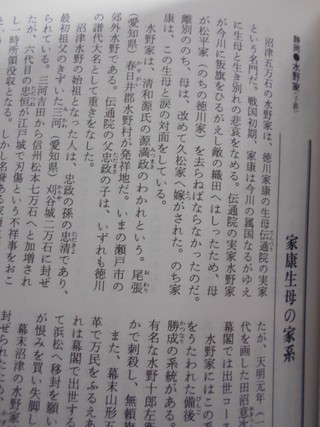 静岡●水野家(子爵)
沼津五万石の水野家は、徳川家康の生母伝通院の実家
という名門だ。戦国初期、家康は今川の属国なるがゆえ
に生母と生き別れの悲哀をなめる。伝通院の実家水野家
が今川に叛旗をひるがえし敵の織田へはしったため、母
が松平家(のちの徳川家)を去らねばならなかったのだ。
離別ののち、母は、改めて久松家へ嫁がされた。のち家
康は、この生母と涙の対面をしている。
水野家は、清和源氏の源満政のわかれという。尾張
(愛知県)春日井郡水野村が発祥地だ。いまの瀬戸市の
郊外水野である。伝通院の父忠政の子は、いずれも徳川
の譜代大名として重きをなした。
沼津水野の始祖となった人は、忠政の孫の忠清であり、
最初祖父のきずいた三河(愛知県)刈谷城二万石に封ぜ
られている。三河吉田から信州松本七万石へと加増され
たが、六代目の忠恒が江戸城で刃傷という不祥事をおこ
し一時所領没収となる。しかし名誉ある家
家康生母の家系
たが、天明元年(
代を画した田沼意
幕閣では出世コー
水野家にはこの系
をうたわれた備後
勝成の系統がある。
有名な水野十郎左衛
かで刺殺し、無頼旗
また、幕末山形五
革で万民をふるえあ
れは幕閣で出世する
て浜松へ移封を願い
が恨みを買い失脚し
幕末沼津の水野家
封ぜられた